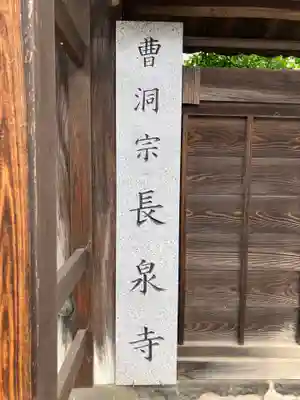 曹洞宗長泉寺